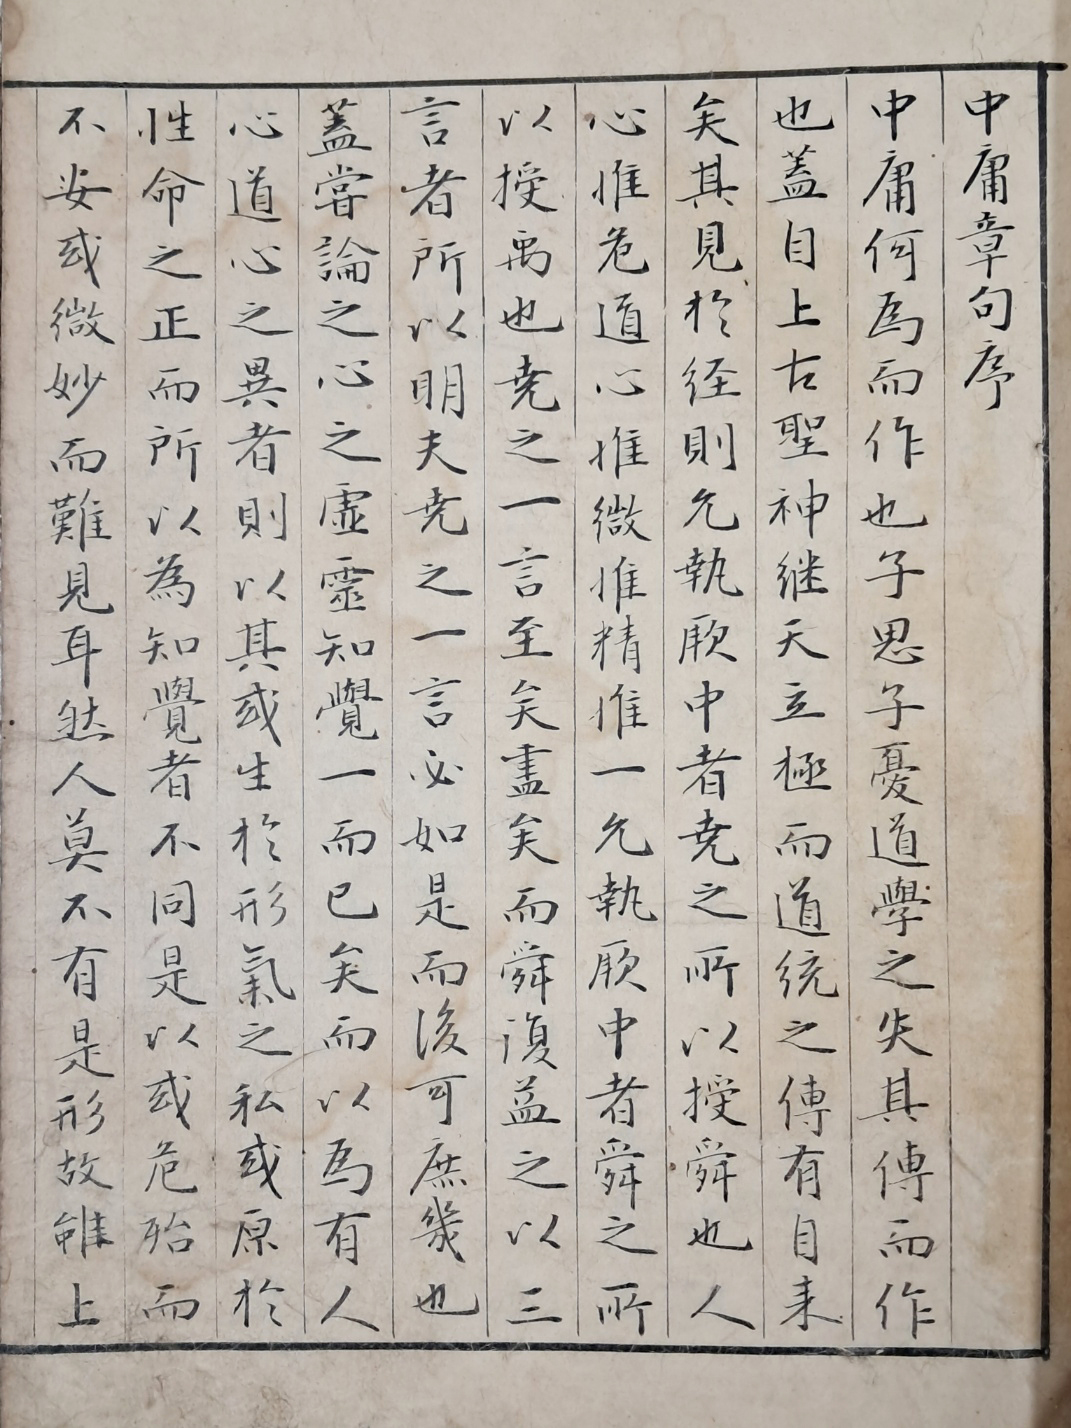 中庸章句序
中庸何為而作也子思子憂道學之失其傳而作
也蓋自上古聖神継天立極而道統之傳有自来
矣其見於経則允執厥中者尭之所以授舜也人
心惟危道心惟微惟精惟一允執厥中者舜之所
以授禹也尭之一言至矣盡矣而舜復益之以三
言者所以明夫尭之一言必如是而後可庶幾也
蓋嘗論之心之虛靈知覺一而已矣而以為有人
心道心之異者則以其或生於形氣之私或原於
性命之正而所以為知覺者不同是以或危殆而
不安或微妙而難見耳然人莫不有是形故雖上